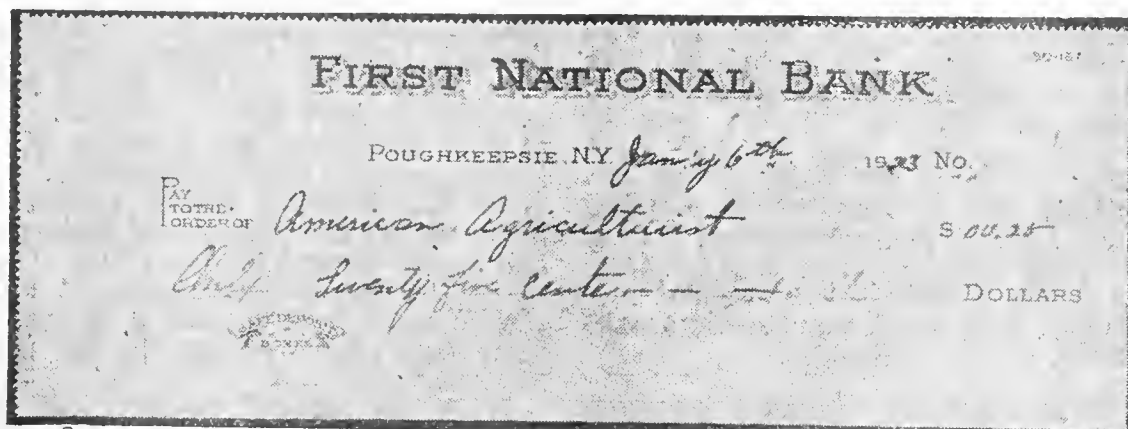 50-187
FIRST NATIONAL BANK
POUGHKEEPSIE, N.Y. Jan'y 6th 1923 No.
PAY TO THE ORDER OF American Agriculturist $ 00.25
Only Twenty five cents DOLLARS
SAFE DEPOSIT BOXES